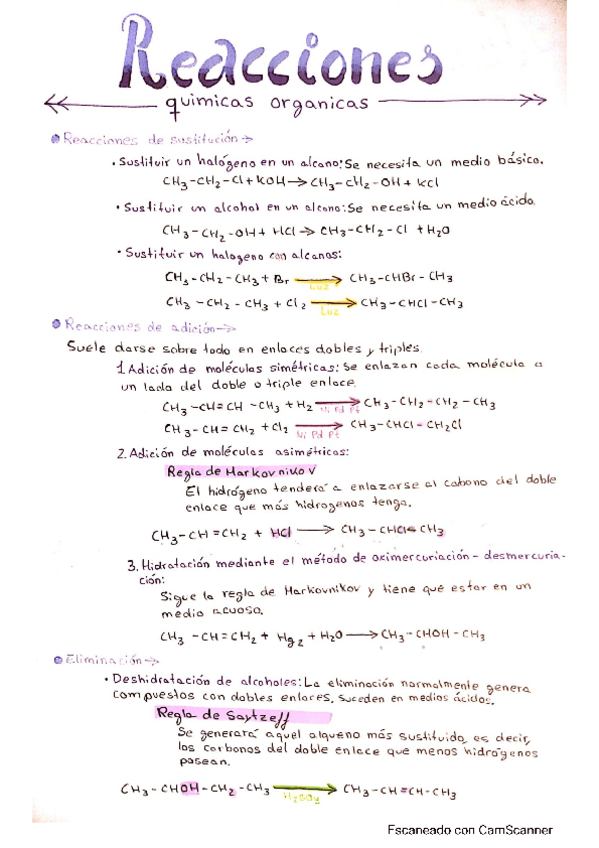 Reacciones
quimicas organicas
Reacciones de sustitución →
• Sustituir un halógeno en un alcano: Se necesita un medio básico.
CH3-CH2-Cl + KOH → CH3-CH2-OH + KCl
• Sustituir un alcohol en un alcano: Se necesita un medio ácido.
CH3-CH2-OH + HCl → CH3-CH2-Cl + H2O
• Sustituir un halogeno con alcanos:
CH3-CH2-CH3 + Br → CH3-CHBr-CH3
Luz
CH3-CH2-CH3 + Cl2 → CH3-CHCl-CH3
Luz
Reacciones de adición →
Suele darse sobre todo en enlaces dobles y triples.
1. Adición de moléculas simétricas: Se enlazan cada molécula a
un lado del doble o triple enlace.
CH3-CH=CH-CH3 + H2 → CH3-CH2-CH2-CH3
Ni Pd Pt
CH3-CH=CH2 + Cl2 → CH3-CHCl-CH2Cl
Ni Pd Pt
2. Adición de moléculas asimétricas:
Regla de Markovnikov
El hidrógeno tenderá a enlazarse al cabono del doble
enlace que más hidrogenos tenga.
CH3-CH=CH2 + HCl → CH3-CHCl-CH3
3. Hidratación mediante el método de oximercuriación - desmercuria-
ción:
Sigue la regla de Markovnikov y tiene que estar en un
medio acuoso.
CH3-CH=CH2 + Hg2 + H2O → CH3-CHOH-CH3
Eliminación →
• Deshidratación de alcoholes: La eliminación normalmente genera
compuestos con dobles enlaces, suceden en medios ácidos.
Regla de Saytzeff
Se generará aquel alqueno más sustituido, es decir,
los carbonos del doble enlace que menos hidrógenos
posean.
CH3-CHOH-CH2-CH3 → CH3-CH=CH-CH3
H2SO4
Escaneado con CamScanner